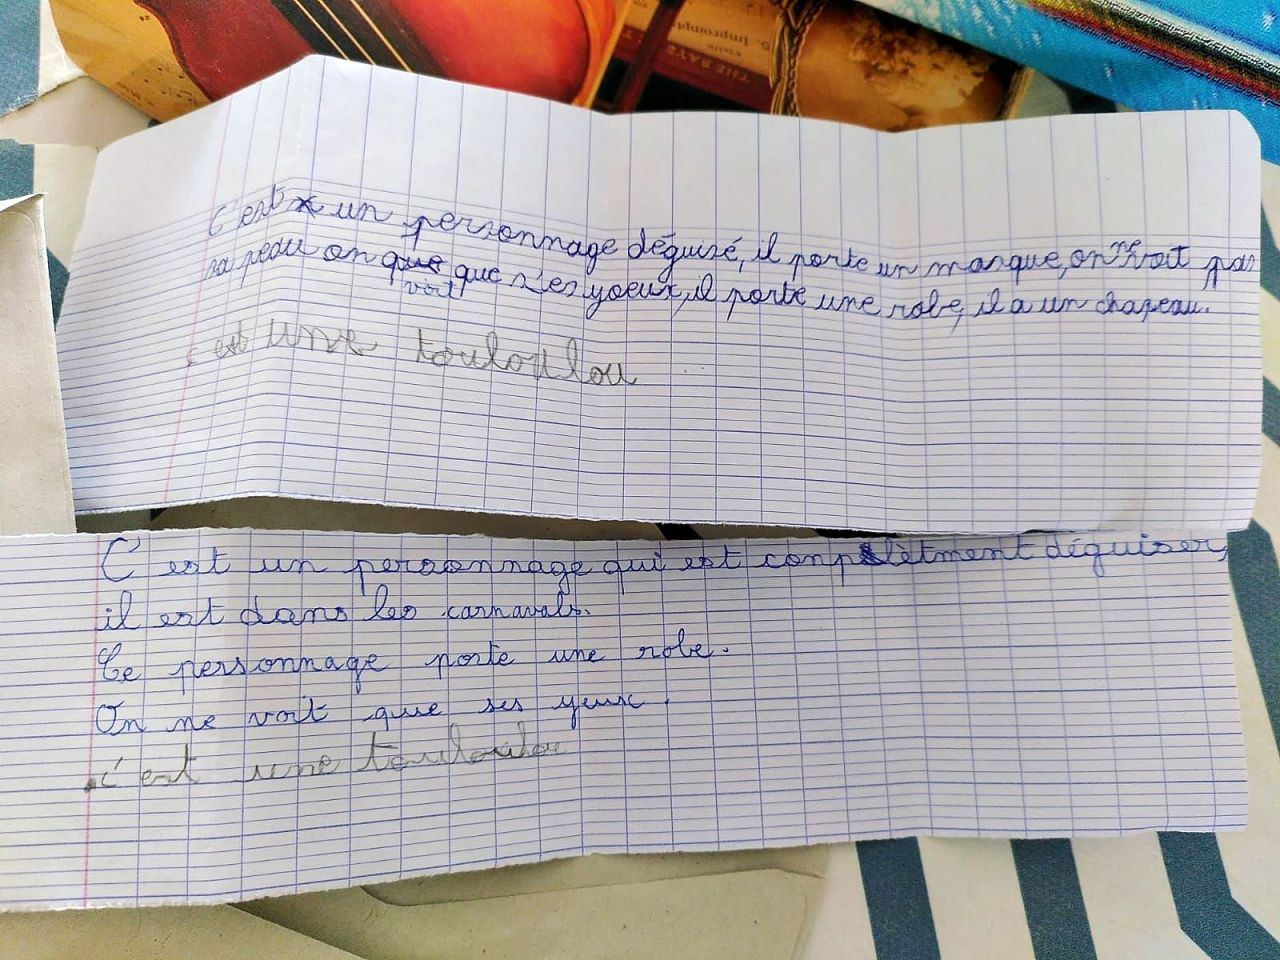 5. Impromptu
Violin
THE BAY
C'est un personnage déguisé, il porte un masque, on ne voit pas
sa peau on que voit que s'es yoeux, il porte une robe, il a un chapeau.
c'est une touloulou
C'est un personnage qui est conplètment déguiser,
il est dans les carnavals.
Ce personnage porte une robe.
On ne voit que ses yeux.
c'est une touloulou